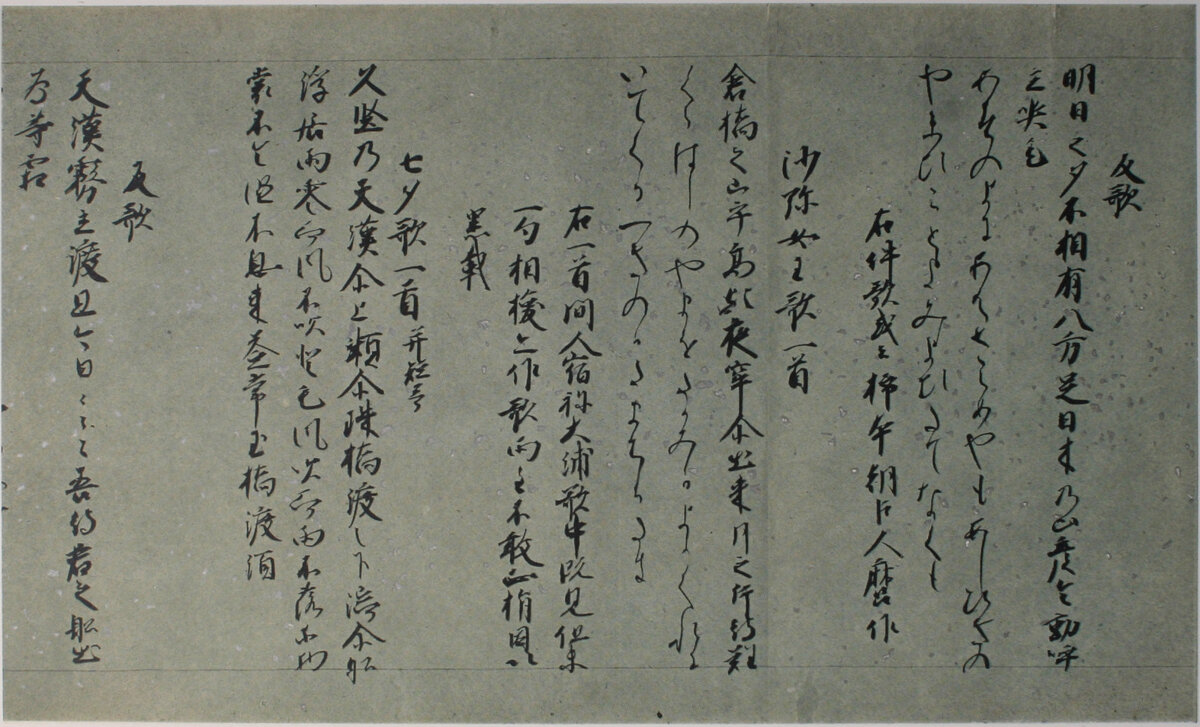 反歌
明日之夕不相有八方足日木乃山彦令動呼
立哭毛
あすのよひあはさらめやもあしひきの
やまひことよみよひたてなくも
右件歌或云柿本朝臣人麿作
沙弥女王歌一首
倉橋之山乎高歟夜窂尓出来月之片待難
くらはしのやまをたかみかよかくれに
いてくるつきのかたまちかたき
右一首間人宿祢大浦歌中既見但末
一句相換亦作歌両主不敢正指因以
累載
七夕歌一首 并短哥
久堅乃天漢尓上瀬尓珠橋渡之下湍尓船
浮居雨零而風不吹登毛風吹而雨不落等物
裳不令湿不息来益常玉橋渡須
反歌
天漢霧立渡且今日〻〻〻吾待君之船出
為等霜